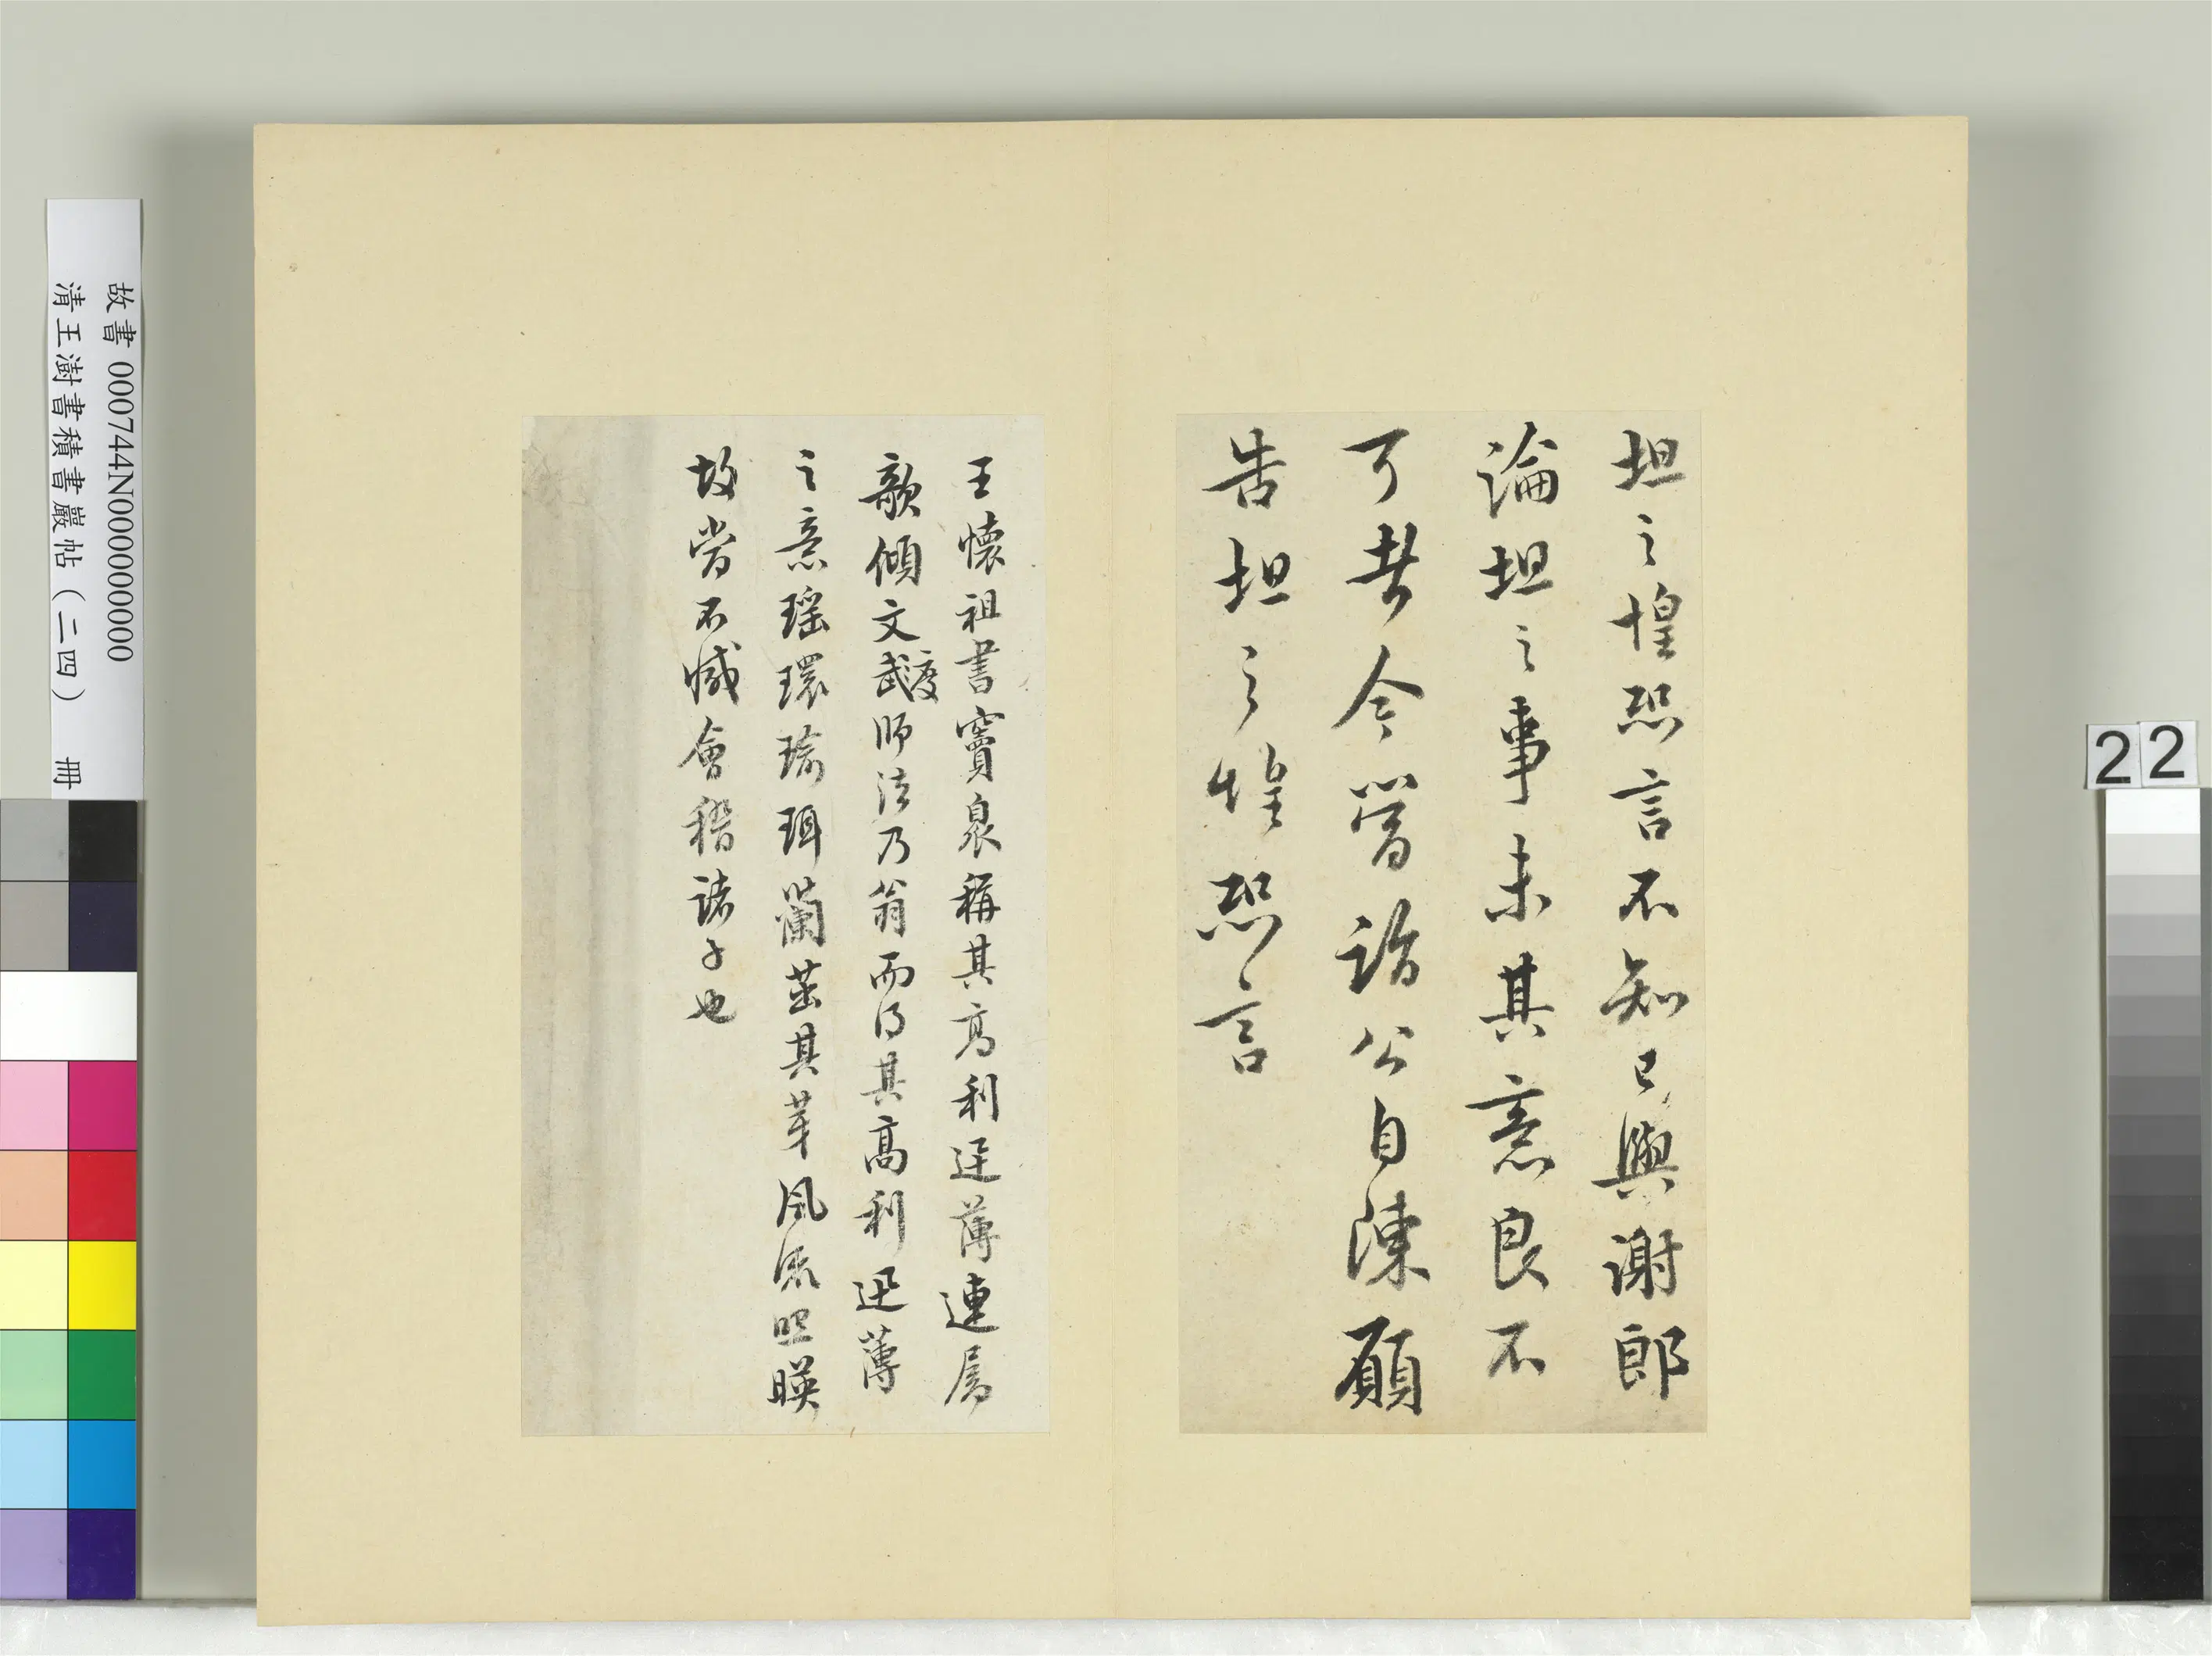 坦之惶恐言不知已與謝郎
論坦之事未其意良不
可者今當詣公自陳願
告坦之惶恐言
王懷祖書竇臮稱其高利迅薄連屬
歌傾文武渡師法乃翁而得其高利迅薄
之意瑶環瑜珥蘭茁其芽風流照暎
故當不減會稽諸子也
故書 000744N000000000
清王澍書積書巖帖(二四) 冊
22